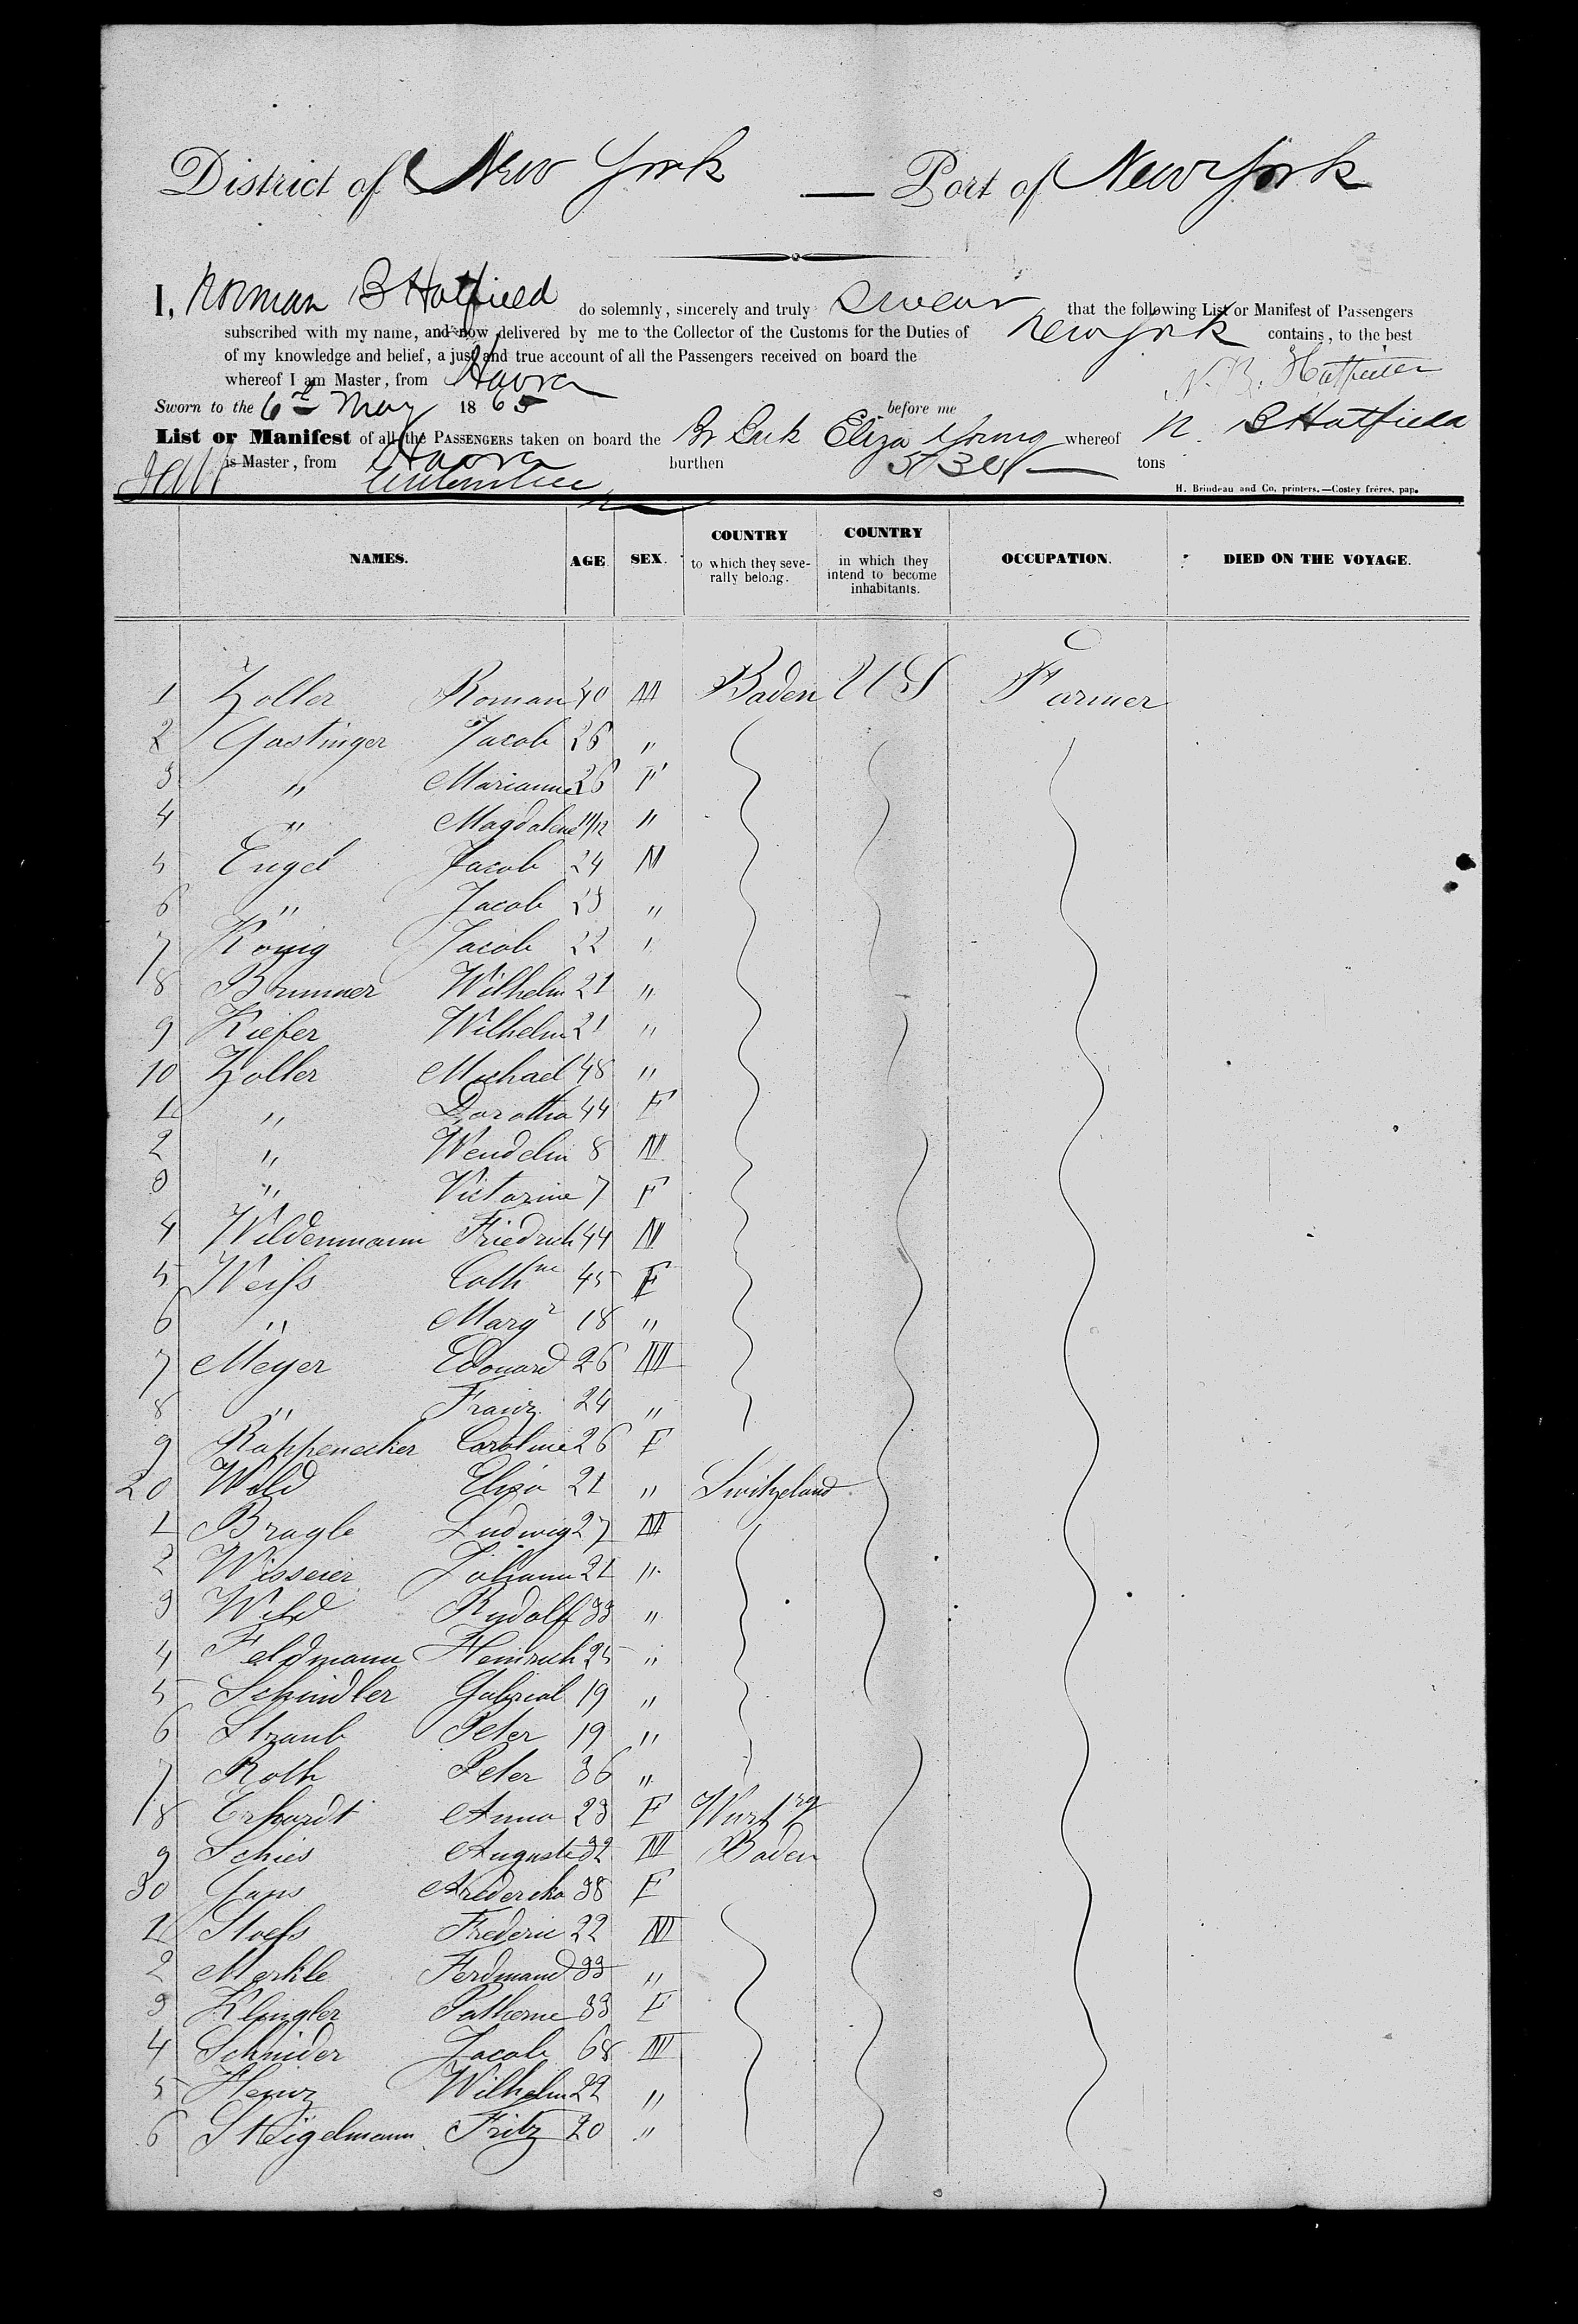 District of New York — Port of New York
I, Norman B Hatfield do solemnly, sincerely and truly Swear that the following List or Manifest of Passengers
subscribed with my name, and now delivered by me to the Collector of the Customs for the Duties of New York contains, to the best
of my knowledge and belief, a just and true account of all the Passengers received on board the
whereof I am Master, from Havre
N. B. Hatfield
Sworn to the 6th May 1865 before me
List or Manifest of all the PASSENGERS taken on board the Br Bark Eliza Young whereof N. B Hatfield
is Master, from Havre burthen tons
H. Brindeau and Co, printers,—Costey fréres, pap.
NAMES. AGE SEX. COUNTRY to which they severally belong. COUNTRY in which they intend to become inhabitants. OCCUPATION. DIED ON THE VOYAGE.
1 Zoller Roman 40 M Baden US Farmer
2 Gastinger Jacob 26 "
3 " Marianne 26 F
4 " Magdalene 11/12 "
5 Engel Jacob 24 M
6 " Jacob 23 "
7 Konig Jacob 22 "
8 Brunner Wilhelm 21 "
9 Kiefer Wilhelm 21 "
10 Zoller Michael 48 "
1 " Dorothea 44 F
2 " Wendelin 8 M
3 " Victorine 7 F
4 Wildenmann Friedrich 44 M
5 Weiss Cathne 45 F
6 " Margr 18 "
7 Meyer Edouard 26 M
8 " Franz 24 "
9 Rappenecker Caroline 26 F
20 Wild Elisa 21 " Switzeland
1 Bragle Ludwig 27 M
2 Wisseier Johann 21 "
3 Wild Rudolf 33 "
4 Feldmann Heinrich 25 "
5 Schindler Gabriel 19 "
6 Straub Peter 19 "
7 Roth Peter 36 "
8 Erhardt Anna 23 F Wurtbrg
9 Schies Auguste 32 M Baden
30 Jans Fredericka 38 F
1 Stoess Frederic 22 M
2 Merkle Ferdinand 33 "
3 Klingler Catherine 33 F
4 Schnider Jacob 68 M
5 Henz Wilhelm 22 "
6 Steigelmann Fritz 20 "